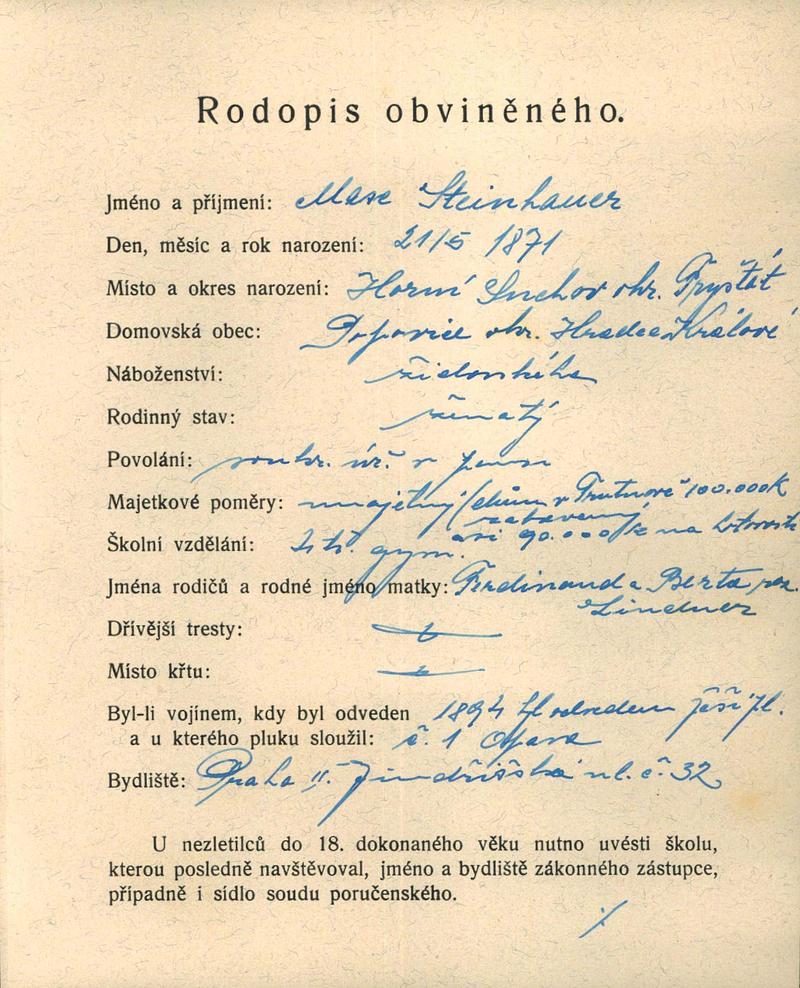 Rodopis obviněného.
Jméno a příjmení: Max Steinhauer
Den, měsíc a rok narození: 21/5 1871
Místo a okres narození: Horní Suchov okr. Fryštát
Domovská obec: Popovice okr. Hradec Králové
Náboženství: židovského
Rodinný stav: ženatý
Povolání: soukr. úř. v pens
Majetkové poměry: majetný /dům v Trutnově 100.000K
zabavený
Školní vzdělání: 4 tř. gym. asi 90.000 K na hotovosti
Jména rodičů a rodné jméno matky: Ferdinand a Berta roz.
Lindner
Dřívější tresty:
Místo křtu:
Byl-li vojínem, kdy byl odveden 1894 odveden pěší pl.
a u kterého pluku sloužil: č. 1 Opava
Bydliště: Praha II. Jindřišská ul. č. 32
U nezletilců do 18. dokonaného věku nutno uvésti školu,
kterou posledně navštěvoval, jméno a bydliště zákonného zástupce,
případně i sídlo soudu poručenského.